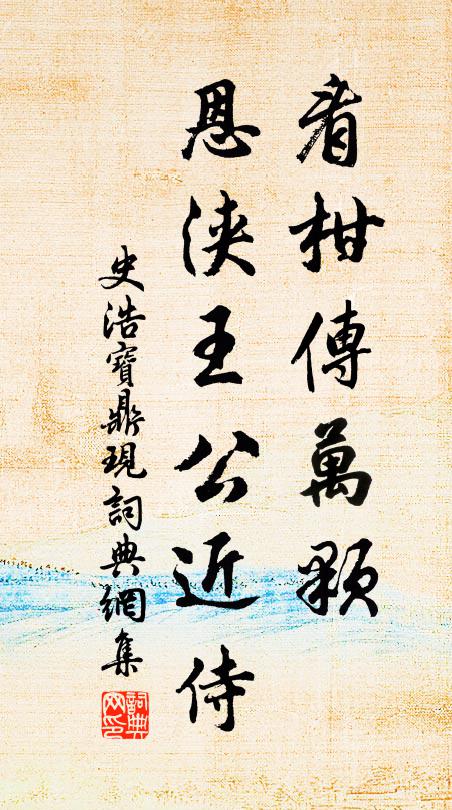 看柑傳萬顆
恩浹王公近侍
史浩寶鼎現詞典網集
詞典网印